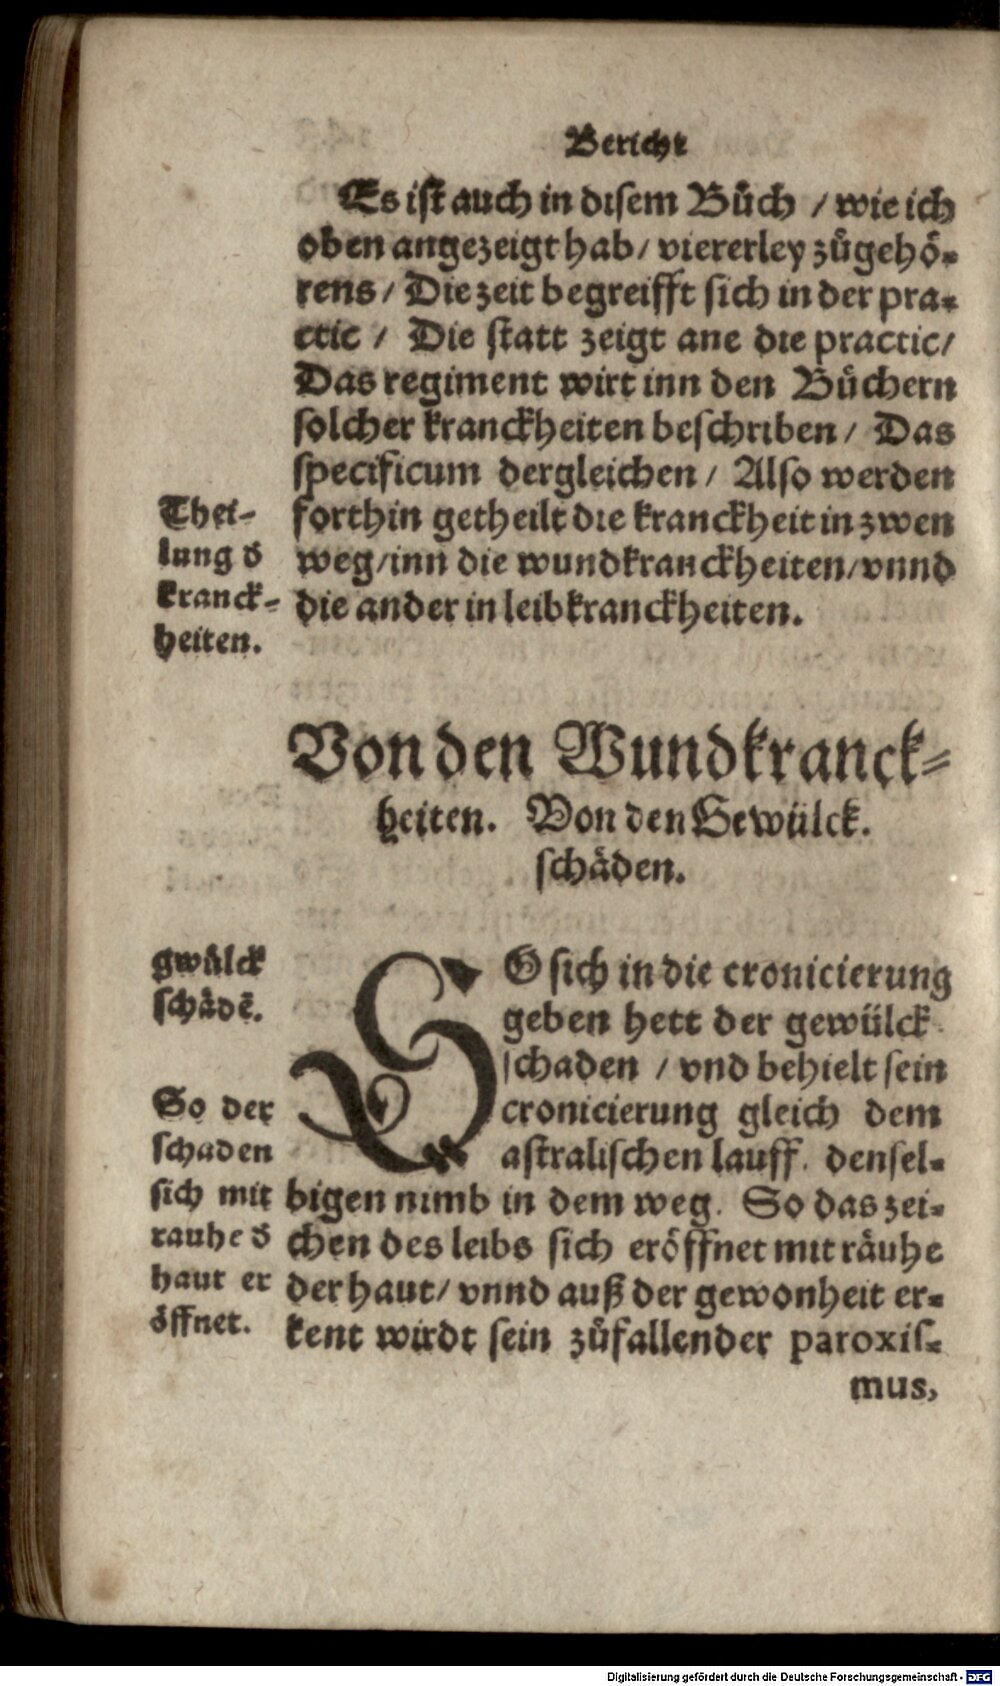 Bericht
Es ist auch in disem Bůch / wie ich
oben angezeigt hab / viererley zůgehö-
rens / Die zeit begreifft sich in der pra-
ctic / Die statt zeigt ane die practic /
Das regiment wirt inn den Büchern
solcher kranckheiten beschriben / Das
specificum dergleichen / Also werden
forthin getheilt die kranckheit in zwen
weg / inn die wundkranckheiten / vnnd
die ander in leibkranckheiten.
Thei-
lung d
kranck-
heiten.
Von den Wundkranck-
heiten. Von den Gewülck.
schäden.
gwülck
schädē.
SO sich in die cronicierung
geben hett der gewülck
schaden / vnd behielt sein
cronicierung gleich dem
astralischen lauff. densel-
bigen nimb in dem weg. So das zei-
chen des leibs sich eröffnet mit räuhe
der haut / vnnd auß der gewonheit er-
kent wirdt sein zůfallender paroxis-
mus,
So der
schaden
sich mit
rauhe d
haut er
öffnet.
Digitalisierung gefördert durch die Deutsche Forschungsgemeinschaft - DFG